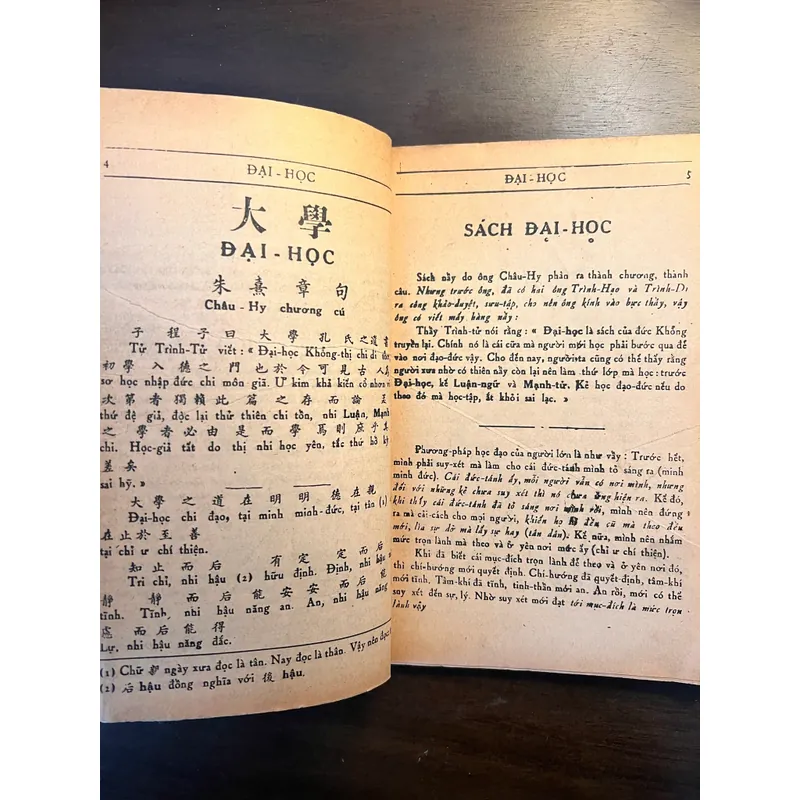 4
ĐẠI-HỌC
大學
ĐẠI-HỌC
朱熹章句
Châu-Hy chương cú
子程子曰大學孔氏之遺書
Tử Trình-Tử viết: «Đại-học Khổng-thị chi di thơ,
初學入德之門也於今可見古人爲
sơ học nhập đức chi môn giã. Ư kim khả kiến cổ nhơn vi
次第者獨賴此篇之存而論孟
thứ đệ giả, độc lại thử thiên chi tồn, nhi Luận, Mạnh
之學者必由是而學焉則庶乎其
chi. Học-giả tất do thị nhi học yên, tắc thứ hồ kỳ
差矣
sai hỹ.»
大學之道在明明德在親
Đại-học chi đạo, tại minh minh-đức, tại tân (1)
在止於至善
tại chỉ ư chí thiện.
知止而后有定定而后
Tri chỉ, nhi hậu (2) hữu định. Định, nhi hậu
靜靜而后能安安而后能
tĩnh. Tĩnh, nhi hậu năng an. An, nhi hậu năng
慮而后能得
Lự, nhi hậu năng đắc.
(1) Chữ 親 ngày xưa đọc là tân. Nay đọc là thân. Vậy nên đọc
(2) 后 hậu đồng nghĩa với 後 hậu.
ĐẠI-HỌC
5
SÁCH ĐẠI-HỌC
Sách nầy do ông Châu-Hy phân ra thành chương, thành
câu. Nhưng trước ông, đã có hai ông Trình-Hạo và Trình-Di
ra công khảo-duyệt, sưu-tập, cho nên ông kính vào bực thầy, vậy
ông có viết mấy hàng nầy:
Thầy Trình-tử nói rằng: «Đại-học là sách của đức Khổng
truyền lại. Chính nó là cái cửa mà người mới học phải bước qua để
vào nơi đạo-đức vậy. Cho đến nay, người ta cũng có thể thấy rằng
người xưa nhờ có thiên nầy còn lại nên làm thứ lớp mà học: trước
Đại-học, kế Luận-ngữ và Mạnh-tử. Kẻ học đạo-đức nếu do
theo đó mà học-tập, ắt khỏi sai lạc.»
Phương-pháp học đạo của người lớn là như vầy: Trước hết,
mình phải suy-xét mà làm cho cái đức-tánh mình tỏ sáng ra (minh
minh đức). Cái đức-tánh ấy, mỗi người vẫn có nơi mình, nhưng
đối với những kẻ chưa suy xét thì nó chưa ửng hiện ra. Kế đó,
khi thấy cái đức-tánh đã tỏ sáng nơi mình rồi, mình nên đứng
ra mà cải-cách cho mọi người, khiến họ bỏ đều cũ mà theo đều
mới, lìa sự dở mà lấy sự hay (tân dân). Kế nữa, mình nên nhắm
mức trọn lành mà theo và ở yên nơi mức ấy (chỉ ư chí thiện).
Khi đã biết cái mục-đích trọn lành để theo và ở yên nơi đó,
thì chí-hướng mới quyết định. Chí-hướng đã quyết định, tâm-khí
mới tĩnh. Tâm-khí đã tĩnh, tinh-thần mới an. An rồi, mới có thể
suy xét đến sự, lý. Nhờ suy xét mới đạt tới mục-đích là mức trọn
lành vậy